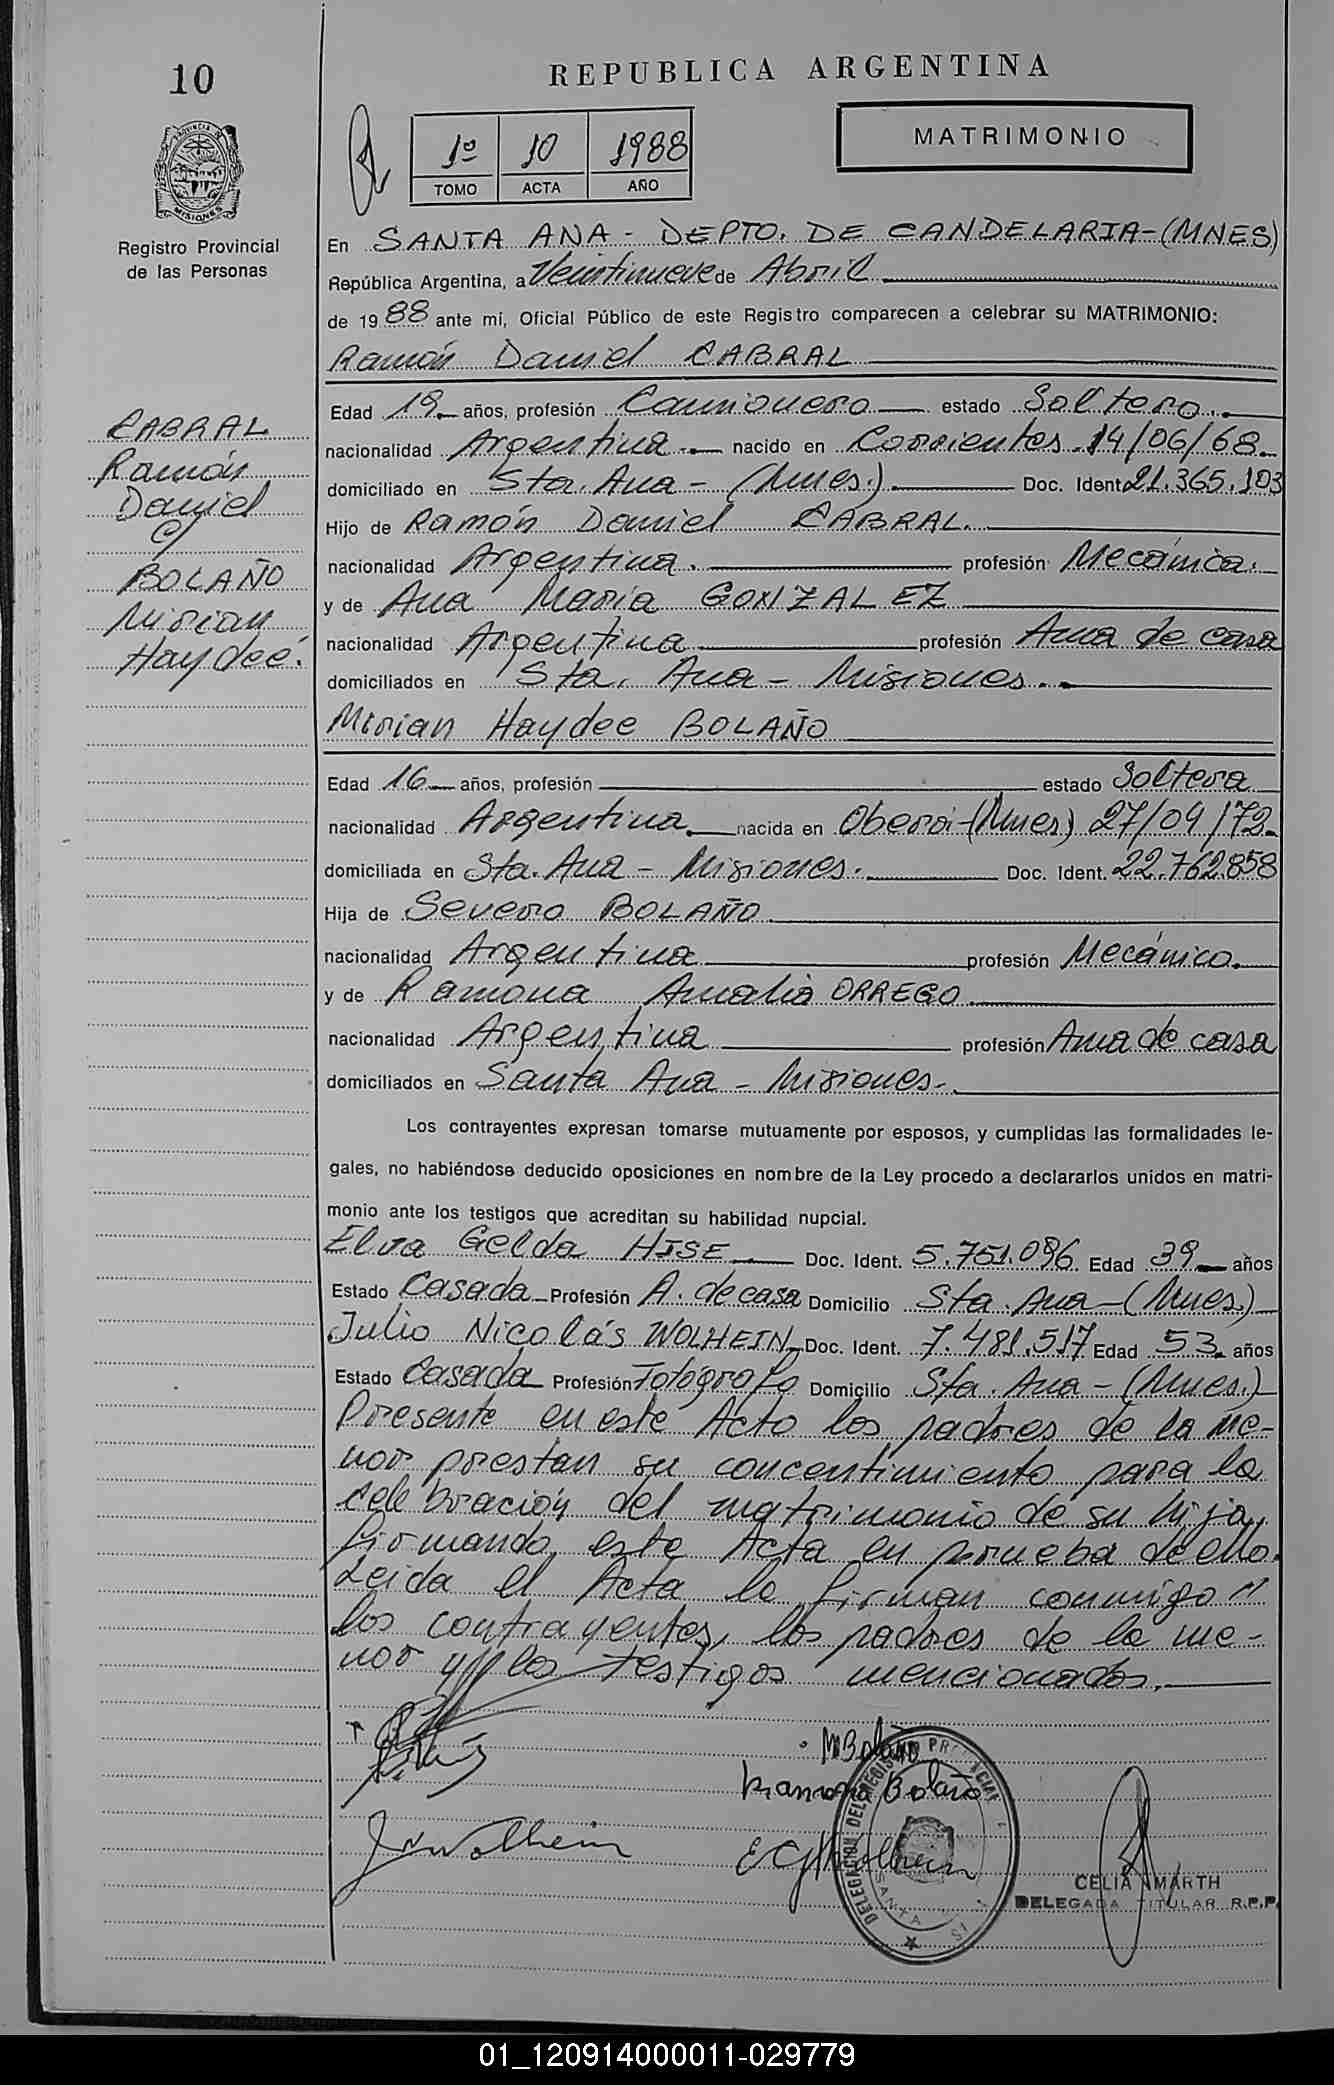 10
REPUBLICA ARGENTINA
1º 10 1988
TOMO ACTA AÑO
MATRIMONIO
PROVINCIA DE
MISIONES
Registro Provincial
de las Personas
En SANTA ANA - DEPTO. DE CANDELARIA-(MNES)
República Argentina, a Veintinueve de Abril
de 19 88 ante mí, Oficial Público de este Registro comparecen a celebrar su MATRIMONIO:
Ramón Daniel CABRAL
Edad 19 años, profesión Camionero estado Soltero.
nacionalidad Argentina. nacido en Corrientes. 14/06/68.
domiciliado en Sta. Ana - (Mnes.). Doc. Ident. 21.365.103
Hijo de Ramón Daniel CABRAL.
nacionalidad Argentina. profesión Mecánica.
y de Ana María GONZALEZ
nacionalidad Argentina profesión Ama de casa
domiciliados en Sta. Ana - Misiones.
CABRAL
Ramón
Daniel
c/
BOLAÑO
Mirian
Haydeé.
Mirian Haydee BOLAÑO
Edad 16 años, profesión estado Soltera
nacionalidad Argentina. nacida en Oberá-(Mnes) 27/04/72.
domiciliada en Sta. Ana - Misiones. Doc. Ident. 22.762.858
Hija de Severo BOLAÑO
nacionalidad Argentina profesión Mecánico.
y de Ramona Amalia ORREGO
nacionalidad Argentina profesión Ama de casa
domiciliados en Santa Ana - Misiones.
Los contrayentes expresan tomarse mutuamente por esposos, y cumplidas las formalidades le-
gales, no habiéndose deducido oposiciones en nombre de la Ley procedo a declararlos unidos en matri-
monio ante los testigos que acreditan su habilidad nupcial.
Elva Gelda HISE Doc. Ident. 5.751.096 Edad 39 años
Estado Casada Profesión A. de casa Domicilio Sta. Ana-(Mnes.)
Julio Nicolás WOLHEIN Doc. Ident. 7.481.517 Edad 53. años
Estado Casada Profesión Fotógrafo Domicilio Sta. Ana-(Mnes.)
Presente en este Acto los padres de la me-
nor prestan su concentimiento para la
celebración del matrimonio de su hija,
firmando este Acta en prueba de ello.
Leida el Acta la firman conmigo
los contrayentes, los padres de la me-
nor y los testigos mencionados.
MBolaño
Ramona Bolaño
JNWolhein
EGHWolhein
DELEGACION DEL REGISTRO PROVINCIAL
SANTA
CELIA MARTH
DELEGADA TITULAR R.P.P.
01_120914000011-029779